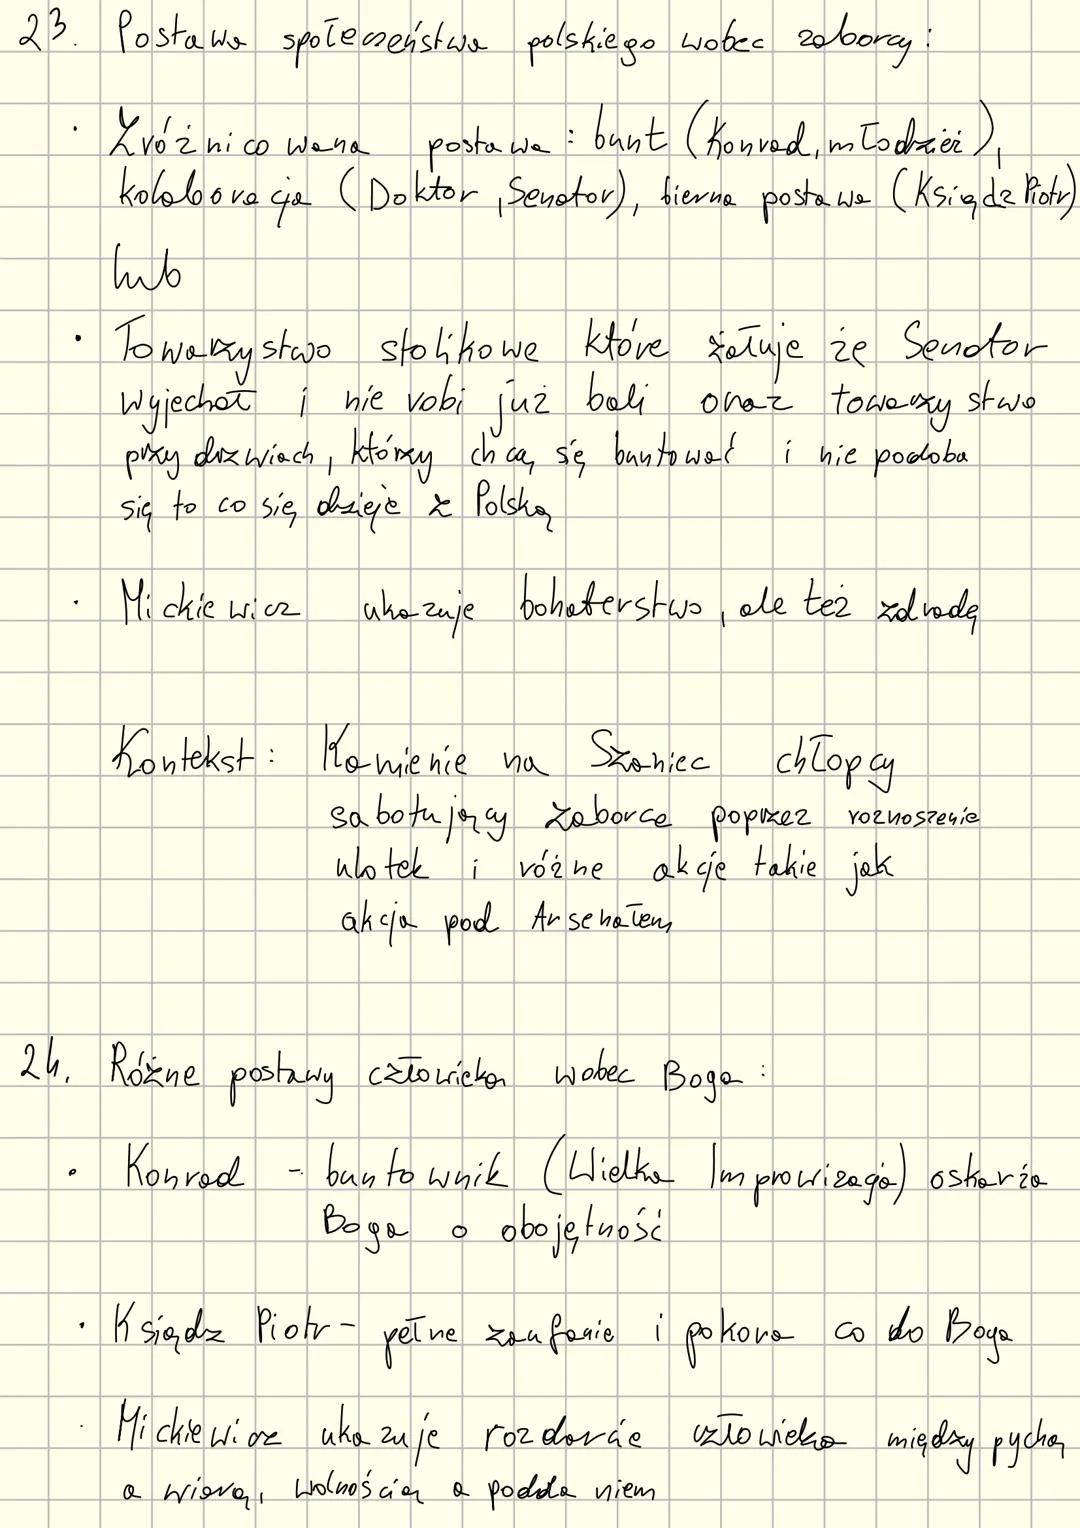 23. Postawa społeczeństwa polskiego wobec zaborcy:
· Zróżnicowana postawa: bunt (Konrad, młodzież),
kolaboracja (Doktor, Senator), bierna postawa (Ksiądz Piotr)
lub
· Towarzystwo stolikowe które żałuje że Senator
wyjechał i nie robi już bali oraz towarzystwo
przy drzwiach, którzy chcą się buntować i nie podoba
się to co się dzieje z Polską
· Mickiewicz ukazuje bohaterstwo, ale też zdradę
Kontekst: Kamienie na Szaniec chłopcy
sabotujący zaborcę poprzez roznoszenie
ulotek i różne akcje takie jak
akcja pod Arsenałem
24. Różne postawy człowieka wobec Boga:
· Konrad - buntownik (Wielka Improwizacja) oskarża
Boga o obojętność
· Ksiądz Piotr - pełne zaufanie i pokora co do Boga
· Mickiewicz ukazuje rozdarcie człowieka między pychą
a wiarą, wolnością a poddaniem